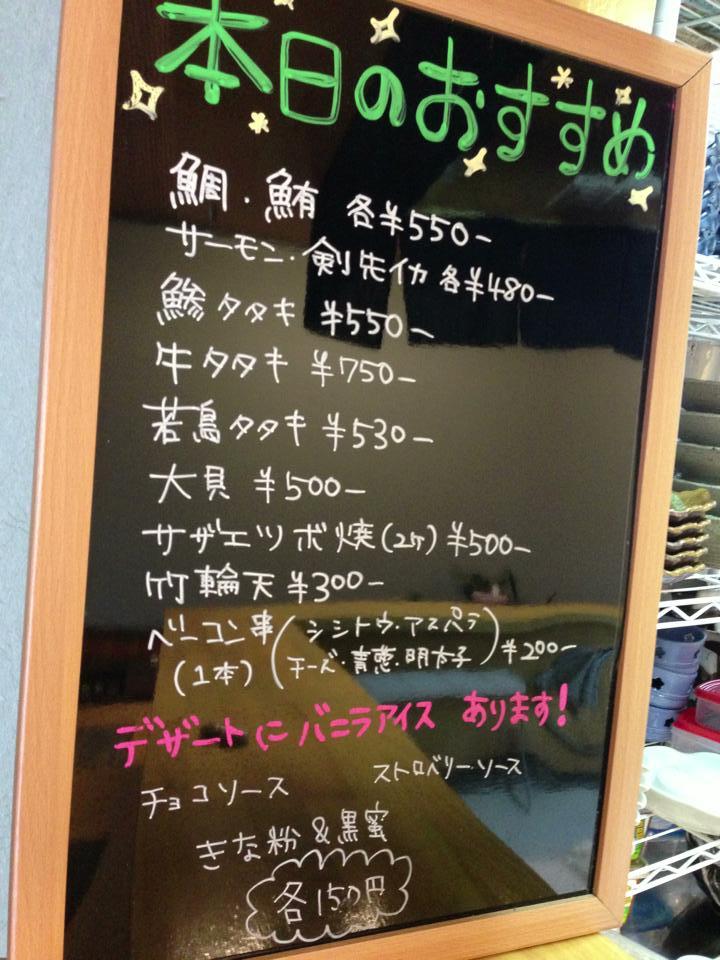 本日のおすすめ
鯛・鮪 各¥550-
サーモン・剣先イカ 各¥480-
鯵タタキ ¥550-
牛タタキ ¥750-
若鳥タタキ ¥530-
大貝 ¥500-
サザエツボ焼(2ケ) ¥500-
竹輪天 ¥300-
ベーコン串(シシトウ・アスパラ
(1本) チーズ・青葱・明太子) ¥200-
デザートにバニラアイス あります!
チョコソース ストロベリーソース
きな粉&黒蜜
各150円